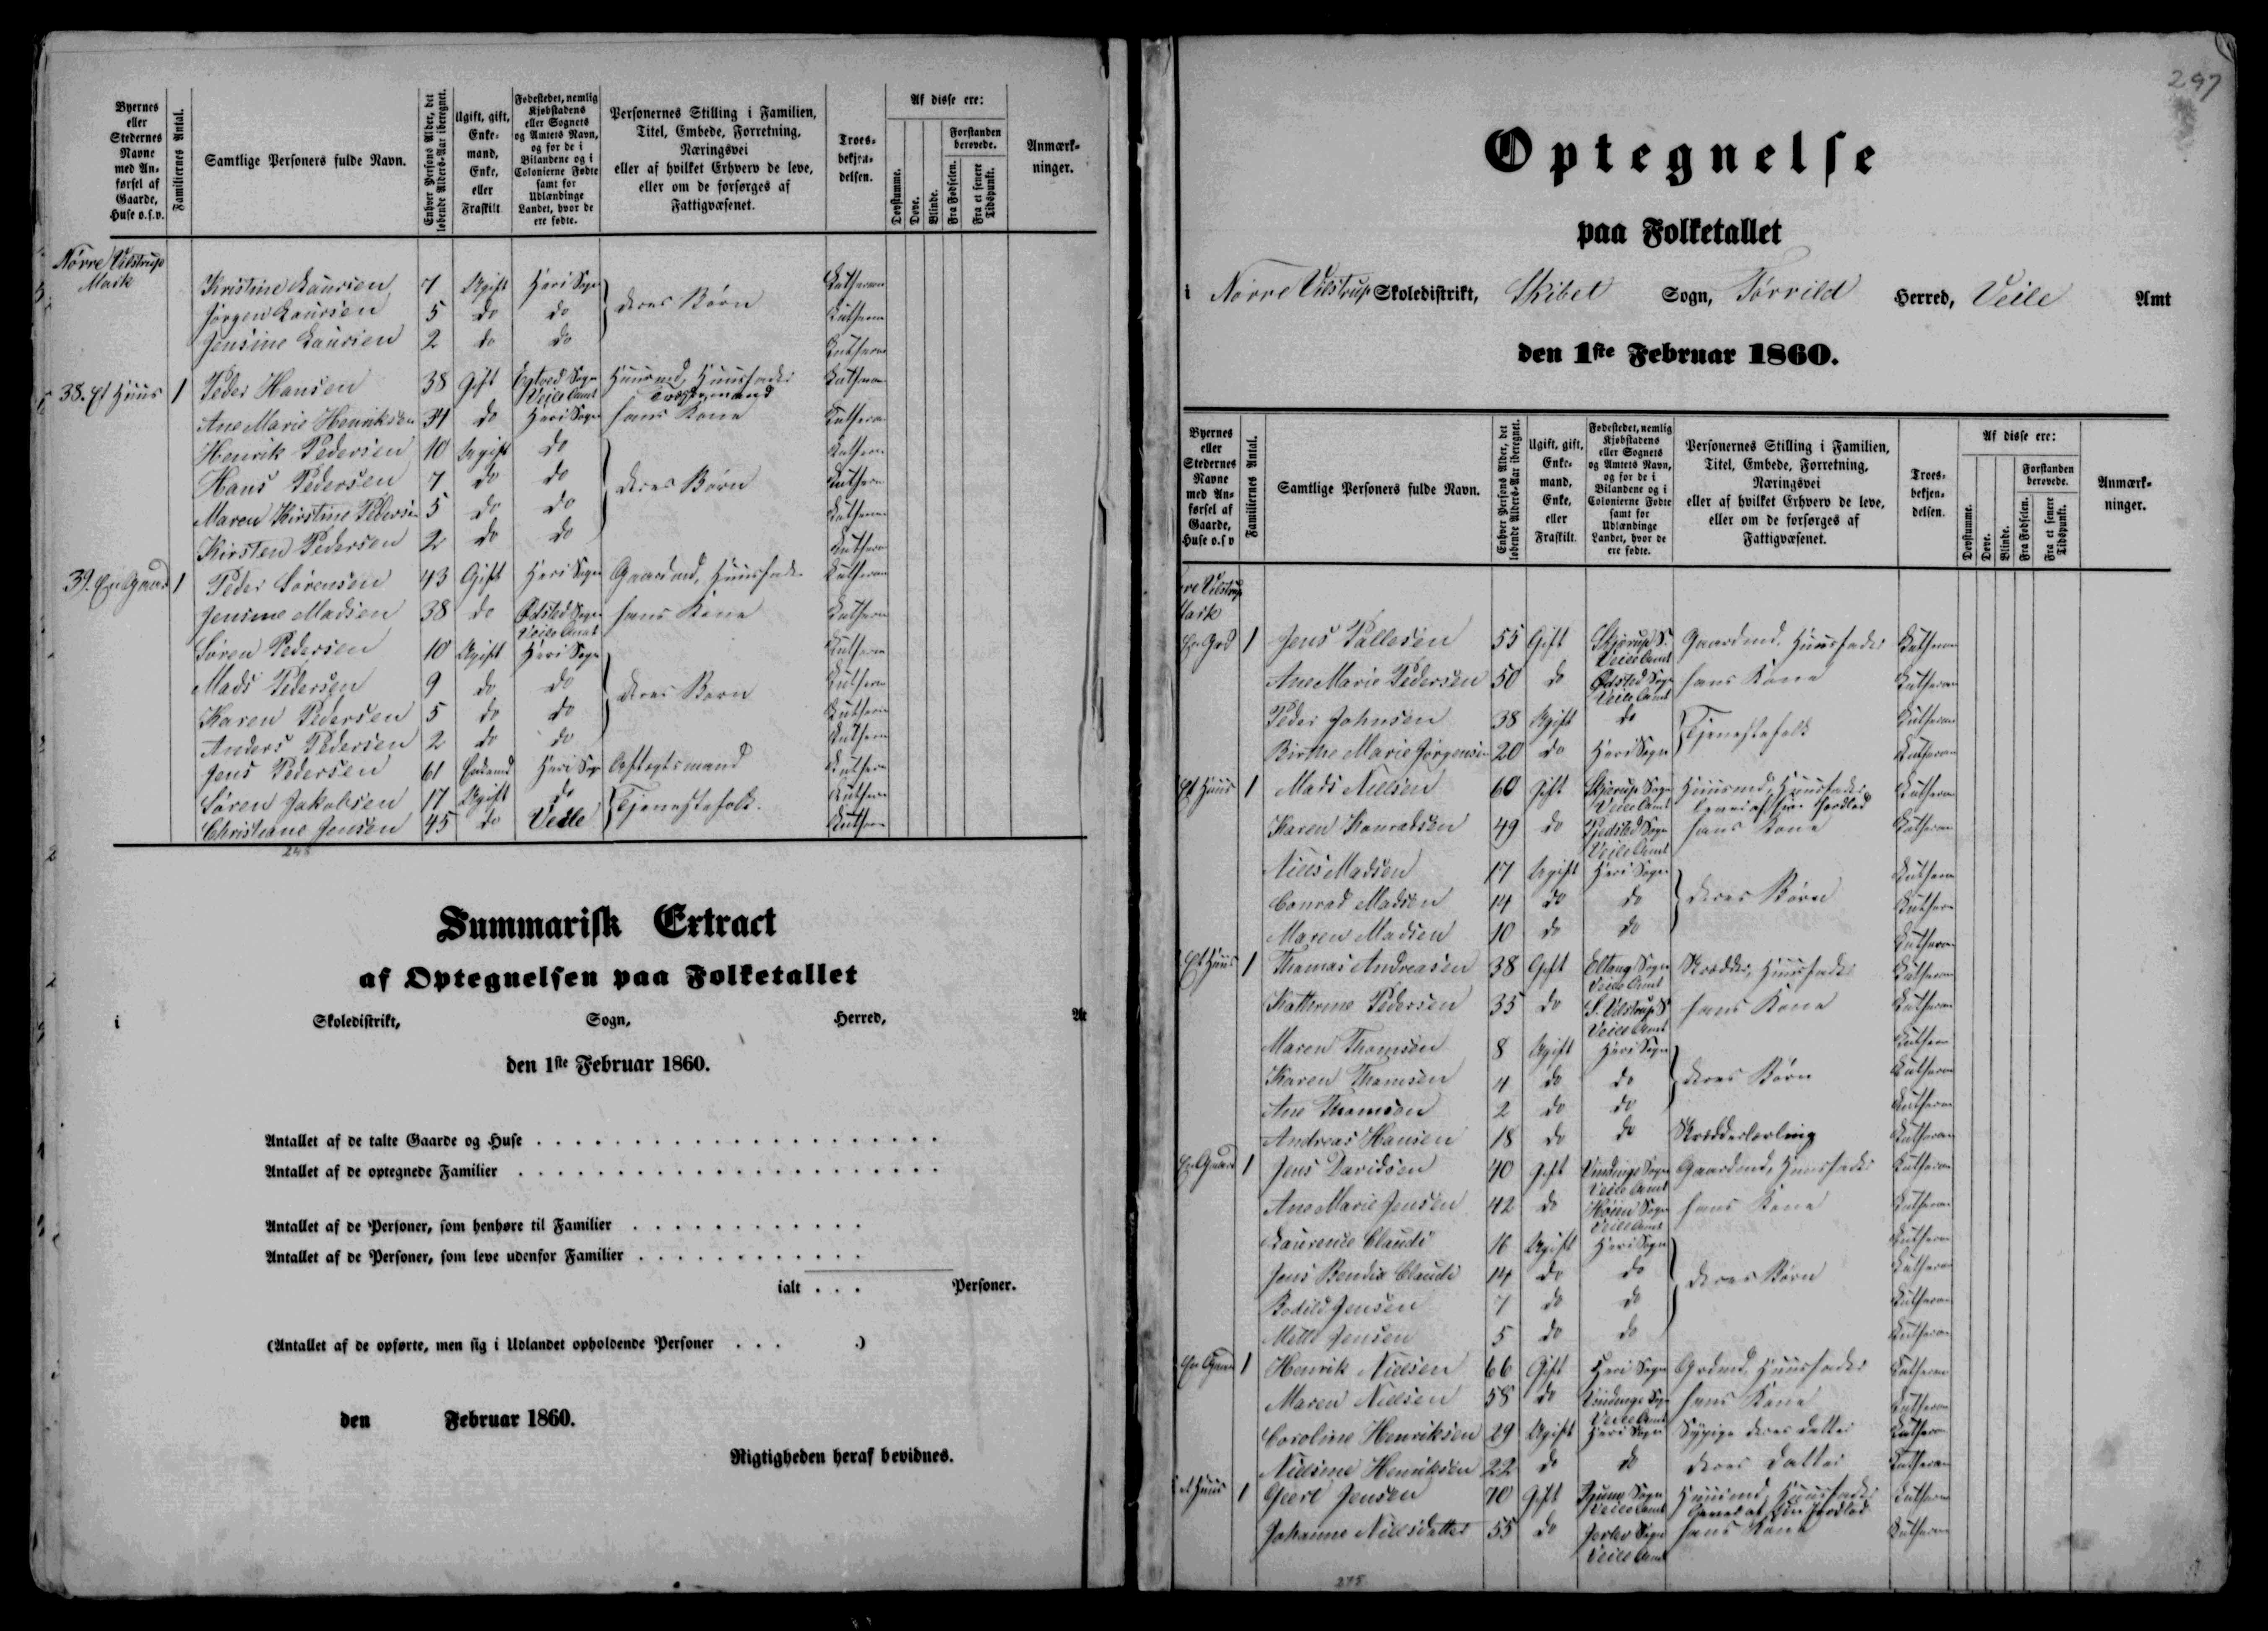 Byernes eller Stedernes Navne med Anførsel af Gaarde, Huse o.s.v.
Familiernes Antal.
Samtlige Personers fulde Navn.
Enhver Persons Alder, det løbende Alders-Aar iberegnet.
Ugift, gift, Enkemand, Enke, eller Fraskilt
Fødestedet, nemlig Kjøbstadens eller Sognets og Amtets Navn, og for de i Bilandene og i Colonierne Fødte samt for Udlændinge Landet, hvor de ere fødte.
Personernes Stilling i Familien, Titel, Embede, Forretning, Næringsvei eller af hvilket Erhverv de leve, eller om de forsørges af Fattigvæsenet.
Troesbekjendelsen.
Af disse ere:
Døvstumme.
Døve.
Blinde.
Forstanden berøvede.
Fra Fødselen.
Fra et senere Tidspunkt.
Anmærkninger.
Nørre Vilstrup
Mark
Kristine Laursen 7 Ugift Heri Sogn Lutheran
Jørgen Laursen 5 do do deres Børn Lutheran
Jensine Laursen 2 do do Lutheran
38. Et Huus 1 Peder Hansen 38 Gift Egtved Sogn Veile Amt Huusmd, Huusfader Lutheran
Ane Marie Henriksen 34 do Heri Sogn hans Kone Lutheran
Henrik Pedersen 10 Ugift do Lutheran
Hans Pedersen 7 do do deres Børn Lutheran
Maren Kirstine Pedersen 5 do do Lutheran
Kirsten Pedersen 2 do do Lutheran
39. En Gaard 1 Peder Sørensen 43 Gift Heri Sogn Gaardmd, Huusfader Lutheran
Jensine Madsen 38 do Ødsted Sogn Veile Amt hans Kone Lutheran
Søren Pedersen 10 Ugift Heri Sogn Lutheran
Mads Pedersen 9 do do deres Børn Lutheran
Karen Pedersen 5 do do Lutheran
Anders Pedersen 2 do do Lutheran
Jens Pedersen 61 Enkemd Heri Sogn Aftægtsmand Lutheran
Søren Jakobsen 17 Ugift do Tjenestefolk. Lutheran
Christiane Jensen 45 do Veile Lutheran
248
Summarisk Extract
af Optegnelsen paa Folketallet
i Skoledistrikt, Sogn, Herred, A
den 1ste Februar 1860.
Antallet af de talte Gaarde og Huse
Antallet af de optegnede Familier
Antallet af de Personer, som henhøre til Familier
Antallet af de Personer, som leve udenfor Familier
ialt . . . Personer.
(Antallet af de opførte, men sig i Udlandet opholdende Personer . . . .)
den Februar 1860.
Rigtigheden heraf bevidnes.
297
Optegnelse
paa Folketallet
i Nørre Vilstrup Skoledistrikt, Skibet Sogn, Tørrild Herred, Veile Amt
den 1ste Februar 1860.
Byernes eller Stedernes Navne med Anførsel af Gaarde, Huse o.s.v
Familiernes Antal.
Samtlige Personers fulde Navn.
Enhver Persons Alder, det løbende Alders-Aar iberegnet.
Ugift, gift, Enkemand, Enke, eller Fraskilt.
Fødestedet, nemlig Kjøbstadens eller Sognets og Amtets Navn, og for de i Bilandene og i Colonierne Fødte samt for Udlændinge Landet, hvor de ere fødte.
Personernes Stilling i Familien, Titel, Embede, Forretning, Næringsvei eller af hvilket Erhverv de leve, eller om de forsørges af Fattigvæsenet.
Troesbekjendelsen.
Af disse ere:
Døvstumme.
Døve.
Blinde.
Forstanden berøvede.
Fra Fødselen.
Fra et senere Tidspunkt.
Anmærkninger.
rre Vilstrup
Mark
En Grd 1 Jens Pallesen 55 Gift Skjerup S. Veile Amt Gaardmd. Huusfader Lutheran
Ane Marie Pedersen 50 do Ødsted Sogn Veile Amt hans Kone Lutheran
Peder Johnsen 38 Ugift do Tjenestefolk Lutheran
Birthe Marie Jørgensen 20 do Heri Sogn Lutheran
Et Huus 1 Mads Nielsen 60 Gift Skjerup Sogn Veile Amt Huusmd, Huusfader lever af sin Jordlod Lutheran
Karen Konradsen 49 do Pjedsted Sogn Veile Amt hans Kone Lutheran
Niels Madsen 17 Ugift Heri Sogn Lutheran
Conrad Madsen 14 do do deres Børn Lutheran
Maren Madsen 10 do do Lutheran
Et Huus 1 Thomas Andreasen 38 Gift Eltang Sogn Veile Amt Skrædder, Huusfader Lutheran
Kathrine Pedersen 35 do S. Vilstrup S Veile Amt hans Kone Lutheran
Maren Thomsen 8 Ugift Heri Sogn Lutheran
Karen Thomsen 4 do do deres Børn Lutheran
Ane Thomsen 2 do do Lutheran
Andreas Hansen 18 do do Skrædderlærling Lutheran
En Gaard 1 Jens Davidsen 40 Gift Vindinge Sogn Veile Amt Gaardmd, Huusfader Lutheran
Ane Marie Jensen 42 do Høien Sogn Veile Amt hans Kone Lutheran
Laurence Claudi 16 Ugift Heri Sogn Lutheran
Jens Bendix Claudi 14 do do deres Børn Lutheran
Bodild Jensen 7 do do Lutheran
Mette Jensen 5 do do Lutheran
En Gaard 1 Henrik Nielsen 66 Gift Heri Sogn Grdmd, Huusfader Lutheran
Maren Nielsen 58 do Vindinge Sogn Veile Amt hans Kone Lutheran
Caroline Henriksen 29 Ugift Heri Sogn Sypige deres datter Lutheran
Nielsine Henriksen 22 do do deres Datter Lutheran
et Huus 1 Geert Jensen 70 Gift Sogn Veile Amt Huusmd, Huusfader lever af sin Jordlod Lutheran
Johanne Nielsdatter 55 do Jerlev Sogn Veile Amt hans Kone Lutheran